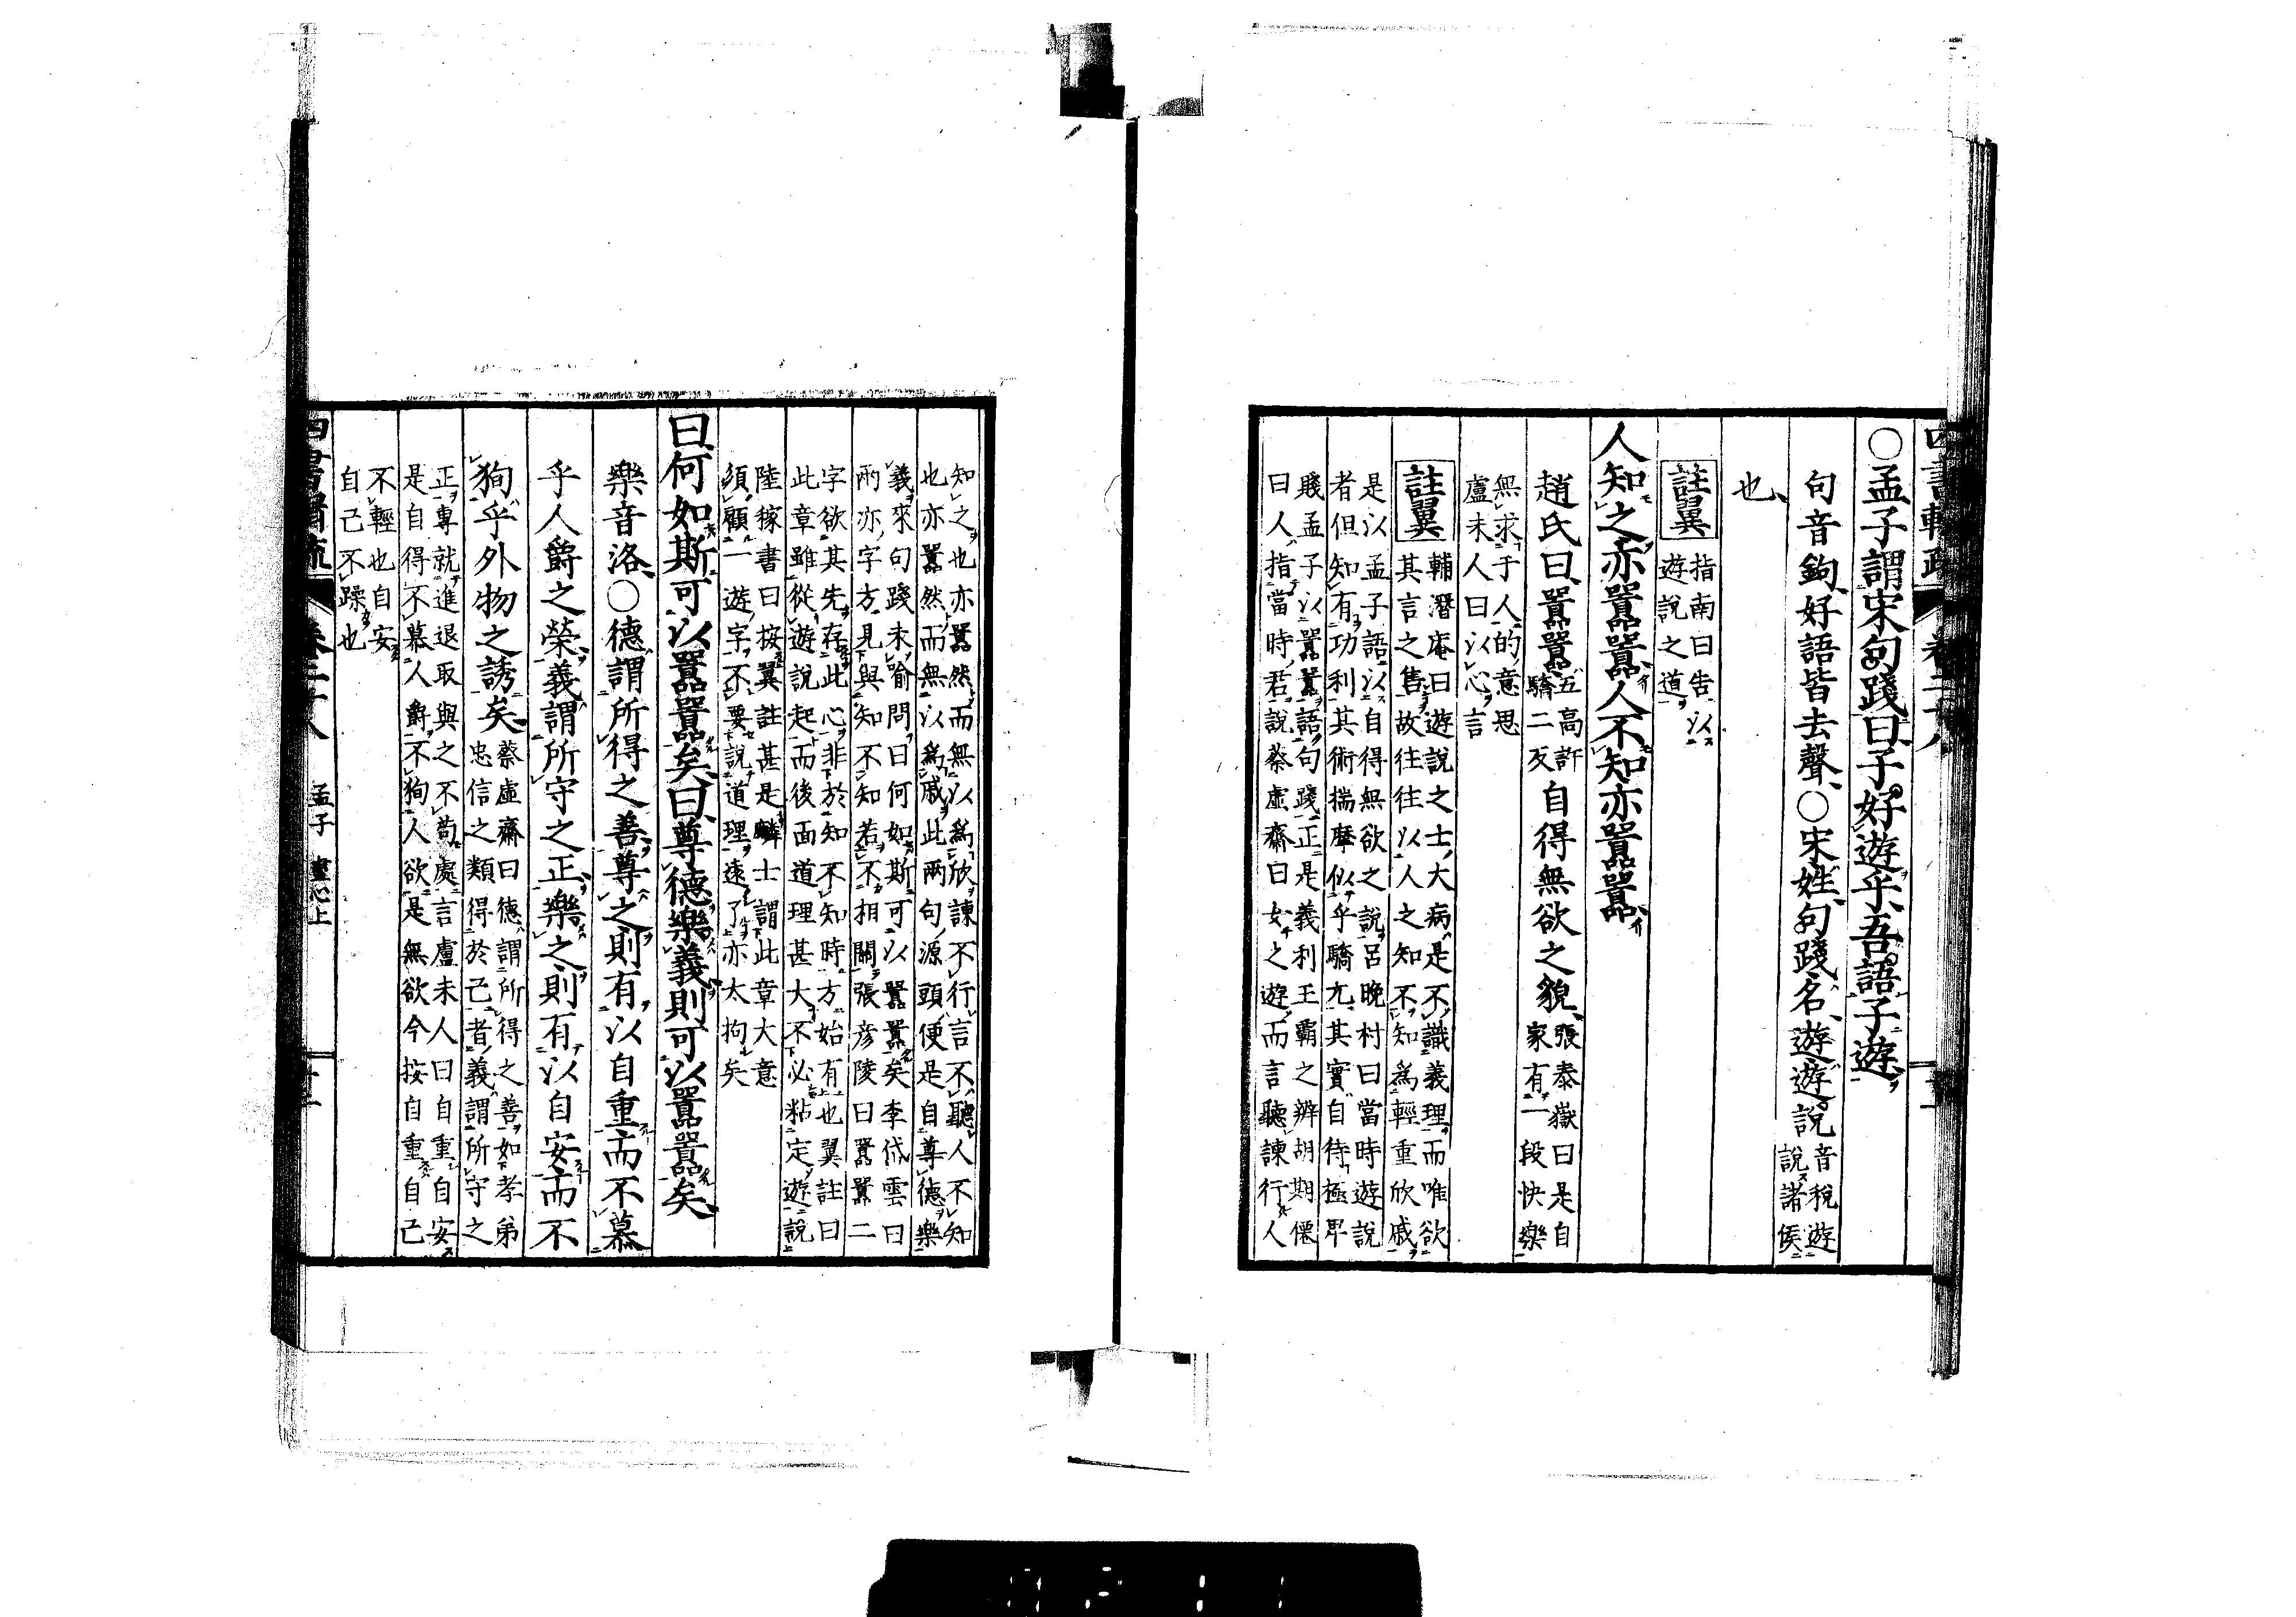 四書輯疏 卷二十八
○孟子謂宋句踐曰子好遊乎吾語子遊
句音鉤好語皆去聲○宋姓句踐名遊遊說
音稅遊
說諸侯
也
註翼
指南曰告以
遊說之道
人知之亦囂囂人不知亦囂囂
趙氏曰囂囂
五高許
驕二反
自得無欲之貌
張泰嶽曰是自
家有一段快樂
無求于人的意思
盧未人曰以心言
註翼
輔潛庵曰遊說之士大病是不識義理而唯欲
其言之售故往往以人之知不知為輕重欣戚
是以孟子語以自得無欲之說呂晚村曰當時遊說
者但知有功利其術揣摩似乎驕亢其實自待極卑
賤孟子以囂囂語句踐正是義利王霸之辨胡期僊
曰人指當時君說蔡虛齋曰女之遊而言聽諫行人
知之也亦囂然而無以為欣諫不行言不聽人不知
也亦囂然而無以為戚此兩句源頭便是自尊德樂
義來句踐未喻問曰何如斯可以囂囂矣李岱雲曰
兩亦字方見與知不知若不相關張彥陵曰囂囂二
字欲其先存此心非於知不知時方始有也翼註曰
此章雖從遊說起而後面道理甚大不必粘定遊說
陸稼書曰按翼註甚是麟士謂此章大意
須顧一遊字不要說道理遠了亦太拘矣
曰何如斯可以囂囂矣曰尊德樂義則可以囂囂矣
樂音洛○德謂所得之善尊之則有以自重而不慕
乎人爵之榮義謂所守之正樂之則有以自安而不
狥乎外物之誘矣
蔡虛齋曰德謂所得之善如孝弟
忠信之類得於己者義謂所守之
正專就進退取與之不苟處言盧未人曰自重自安
是自得不慕人爵不狥人欲是無欲今按自重自己
不輕也自安
自己不躁也
四書輯疏 卷二十八 孟子 盡心上